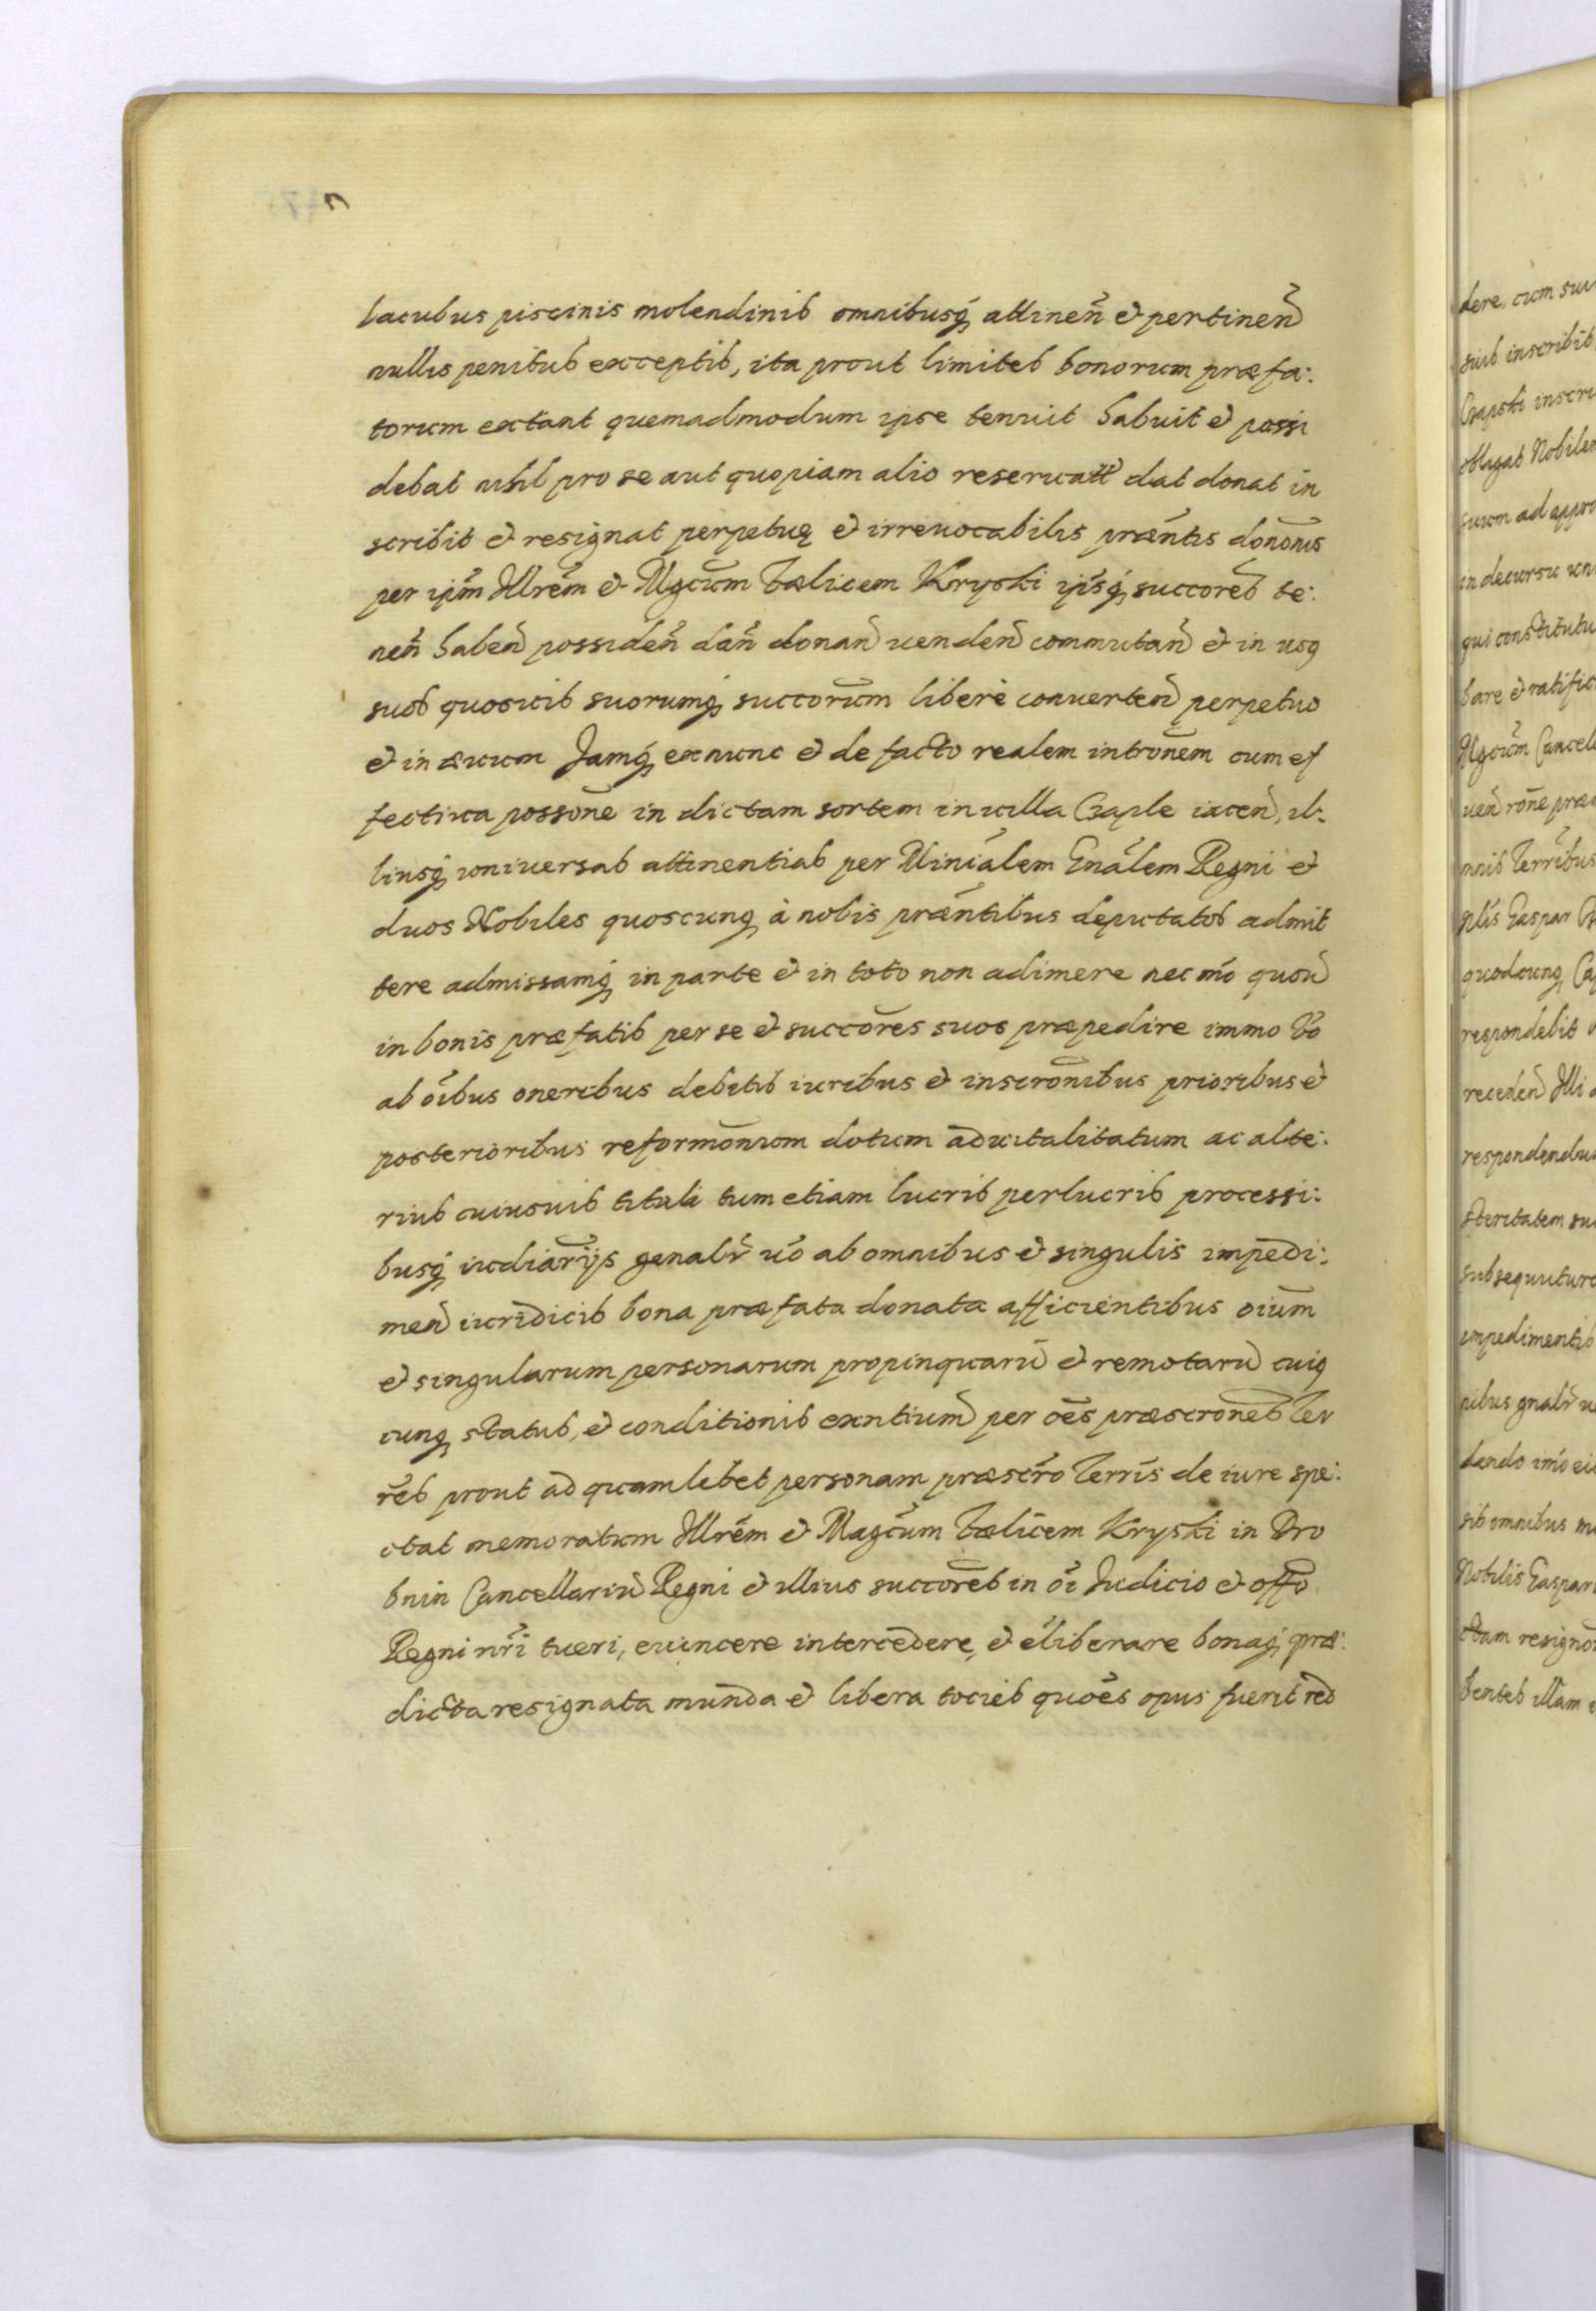 lacubus piscinis molendinis omnibusq́ attineñ et pertineñ
nullis penitus exceptis, ita prout limites bonorum præfa:
torum extant quemadmodum ipse tenuit habuit et possi
debat nihil pro se aut quopiam alio reseruatt dat donat in
scribit et resignat perpetuę et irreuocabilis præñtis donõnis
per ipm̃ Illrẽm et Mgcũm Fælicem Kryski ipsq́ succores te:
neñ habeñ possideñ dañ donañ uendeñ commutañ et in usq
suos quosuis suorumq́ succorũm liberè conuerteñ perpetuo
et in æuum Jamq́ ex nunc et de facto realem intrõnem cum ef
fectiua possõne in dictam sortem in uilla Czaple iaceñ, il:
liusq́ uniuersas attinentias per Miniãlem Gnãlem Regni et
duos Nobiles quoscunq à nobis præñtibus deputatos admit
tere admissamq́ in parte et in toto non adimere nec mõ quoũ
in bonis præfatis per se et succõres suos præpedire immo Võ
ab õibus oneribus debitis iuribus et inscrõnibus prioribus et
posterioribus reformõnum dotum aduitalitatum ac alte:
rius cuiusuis tituli tum etiam lucris perlucris processi:
busq́ iudiãrijs genalr̃ uõ ab omnibus et singulis impedi:
meñ iuridicis bona præfata donata afficientibus oiũm
et singularum personarum propinquarũ et remotarũ cuiq
cunq status, et conditionis exñtium per oẽs præscrõnes Ter
rẽs prout ad quamlibet personam præscrõ Terrĩs de iure spe:
ctat memoratum Illrẽm et Magcũm Fælicem Kryski in Dro
bnin Cancellariũ Regni et illius succorẽs in oĩ Iudicio et offõ
Regni nrĩ tueri, euincere intercedere, et eliberare bonaq́ præ:
dicta resignata munda et libera tocies quoẽs opus fuerit red
dere. cum sui
suis inscribit
Czapski inscri
obligat Nobilem
suum ad appro
in decursu un
qui constitutu
bare et ratific
Mgcũm Cancel
ueñ rõne præ
mnis Terrĩbus
Gaspar
quodcunq
respondebit
recedeñ Illi
respondendu
steritatem su
subsequutur
impedimentis
nibus gnalr̃
dendo imõ ei
sis omnibus m
Nobilis Gaspar
ctam resigno
bentes illam e